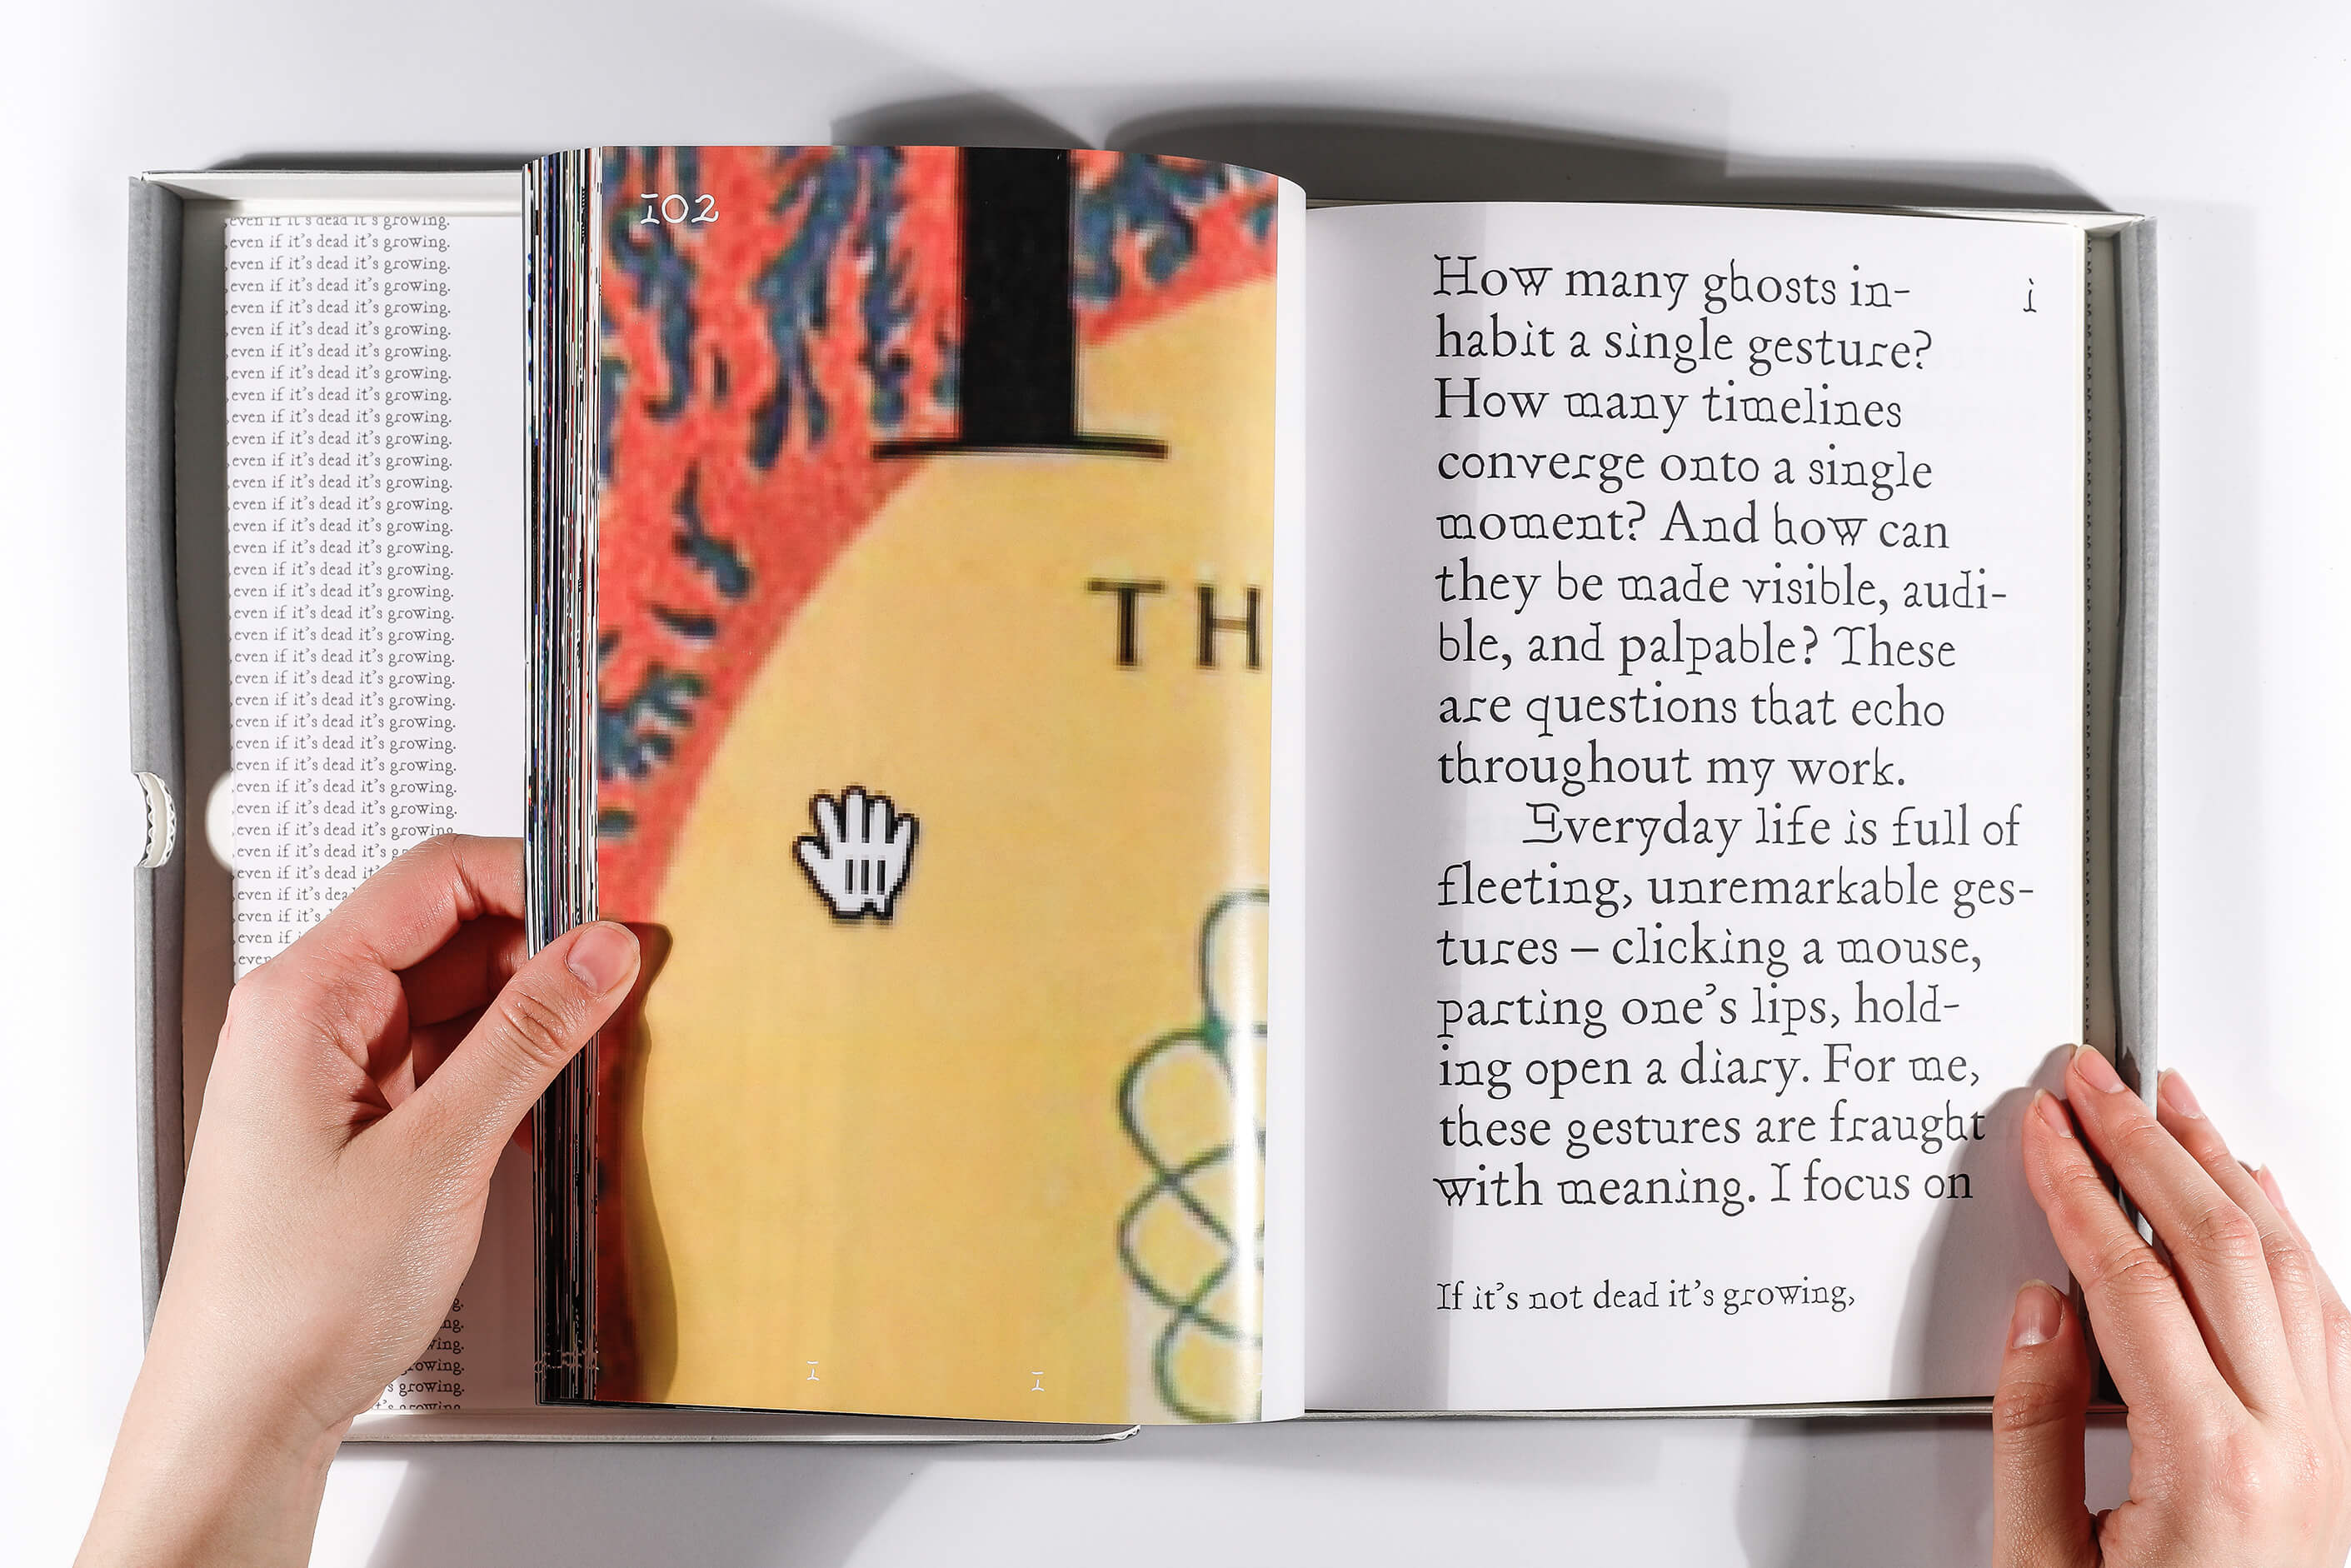 ,even if it's dead it's growing.
,even if it's dead it's growing.
,even if it's dead it's growing.
,even if it's dead it's growing.
,even if it's dead it's growing.
,even if it's dead it's growing.
,even if it's dead it's growing.
,even if it's dead it's growing.
,even if it's dead it's growing.
,even if it's dead it's growing.
,even if it's dead it's growing.
,even if it's dead it's growing.
,even if it's dead it's growing.
,even if it's dead it's growing.
,even if it's dead it's growing.
,even if it's dead it's growing.
,even if it's dead it's growing.
,even if it's dead it's growing.
,even if it's dead it's growing.
,even if it's dead it's growing.
,even if it's dead it's growing.
,even if it's dead it's growing.
,even if it's dead it's growing.
,even if it's dead it's growing.
,even if it's dead it's growing.
,even if it's dead it's growing.
,even if it's dead it's growing.
,even if it's dead it's growing.
,even if it's dead it's growing
,even if it's dead it's
,even if it's dead it
,even if it's dea
,even if it's
,even if
,even
g.
ng.
wing.
rowing.
s growing.
t's growing
102
TH
I
I
i
How many ghosts in-
habit a single gesture?
How many timelines
converge onto a single
moment? And how can
they be made visible, audi-
ble, and palpable? These
are questions that echo
throughout my work.
Everyday life is full of
fleeting, unremarkable ges-
tures – clicking a mouse,
parting one's lips, hold-
ing open a diary. For me,
these gestures are fraught
with meaning. I focus on
If it's not dead it's growing,